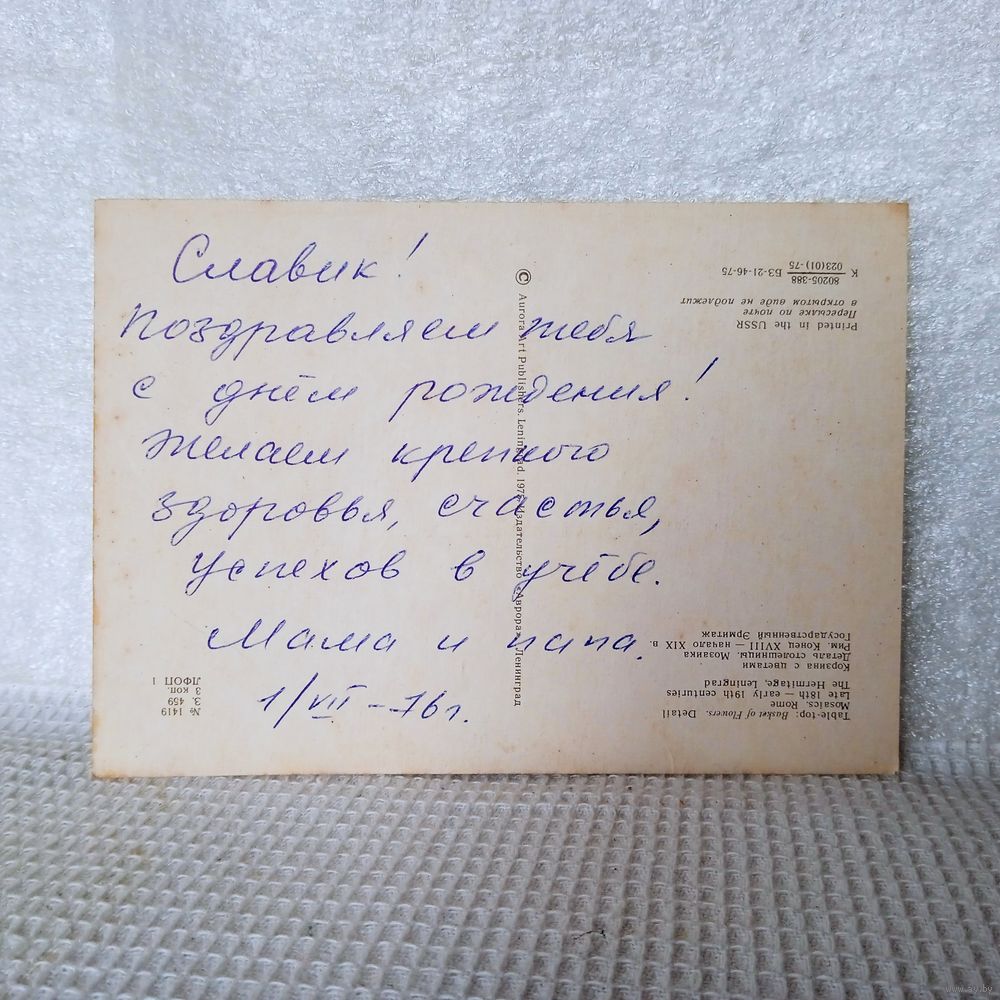 Славик!
Поздравляем тебя
с днём рождения!
Желаем крепкого
здоровья, счастья,
успехов в учёбе.
Мама и папа.
1/VII – 76 г.
Table-top: Basket of Flowers. Detail
Mosaics. Rome
Late 18th — early 19th centuries
The Hermitage, Leningrad
Корзина с цветами
Деталь столешницы. Мозаика
Рим. Конец XVIII — начало XIX в.
Государственный Эрмитаж
© Aurora Art Publishers. Leningrad. Издательство «Аврора». Ленинград
№ 1419
З. 459
3 коп.
ЛФОП 1
Printed in the USSR
Пересылке по почте
в открытом виде не подлежит
К 80205-388 БЗ-21-46-75
023(01)-75
www.ay.by